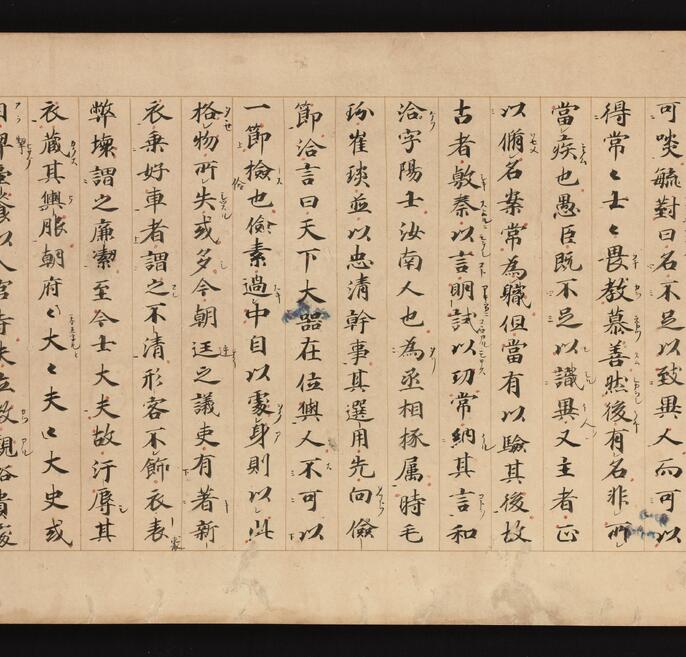 可啖毓對曰名不足以致異人而可以
得常々士々畏教慕善然後有名非所
當疾也愚臣既不足以識異又主者正
以循名案常為職但當有以驗其後故
古者敷奏以言明試以功常納其言和
洽字陽士汝南人也為丞相掾属時毛
玠崔琰並以忠清幹事其選用先尚儉
節洽言曰天下大器在位與人不可以
一節撿也儉素過中自以處身則以此
格物所失或多今朝廷之議吏有著新
衣乗好車者謂之不清形容不飾衣裘
弊壊謂之廉潔至令士大夫故汙辱其
衣蔵其輿服朝府々大々夫々大史或
自挈壺飡以入官寺夫立教觀俗貴處